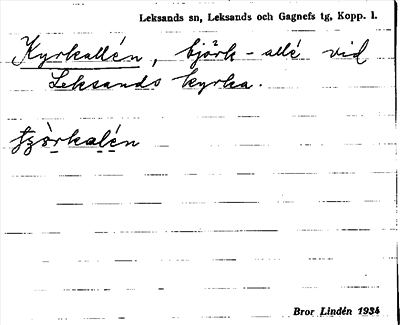 Leksands sn, Leksands och Gagnefs tg, Kopp. l.
Kyrkallén, björk-allé vid
Leksands kyrka.
Bror Lindén 1934